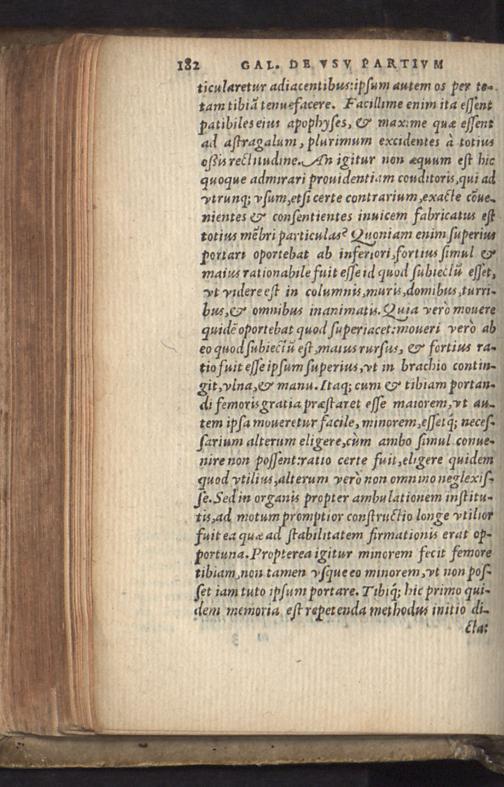 182 GAL. DE VSV PARTIVM
ticularetur adiacentibus: ipsum autem os per to-
tam tibiã tenuefacere. Facillime enim ita essent
patibiles eius apophyses, & maxime quæ essent
ad astragalum, plurimum excidentes à totius
oßis rectitudine. An igitur non æquum est hic
quoque admirari prouidentiam conditoris, qui ad
vtrunq; vsum, etsi certe contrarium, exacte cõue-
nientes & consentientes inuicem fabricatus est
totius mẽbri particulas? Quoniam enim superius
portari oportebat ab inferiori, fortius simul &
maius rationabile fuit esse id quod subiectũ esset,
vt videre est in columnis, muris, domibus, turri-
bus, & omnibus inanimatis. Quia verò mouere
quidẽ oportebat quod superiacet: moueri verò ab
eo quod subiectũ est, maius rursus, & fortius ra-
tio fuit esse ipsum superius, vt in brachio contin-
git, vlna, & manu. Itaq; cum & tibiam portan-
di femoris gratia præstaret esse maiorem, vt au-
tem ipsa moueretur facile, minorem, essetq́; neces-
sarium alterum eligere, cùm ambo simul conue-
nire non possent: ratio certe fuit, eligere quidem
quod vtilius, alterum verò non omnino neglexis-
se. Sed in organis propter ambulationem institu-
tis, ad motum promptior constructio longe vtilior
fuit ea quæ ad stabilitatem firmationis erat op-
portuna. Propterea igitur minorem fecit femore
tibiam, non tamen vsque eo minorem, vt non pos-
set iam tuto ipsum portare. Tibiq́; hic primo qui-
dem memoria est repetenda methodus initio di-
cta: